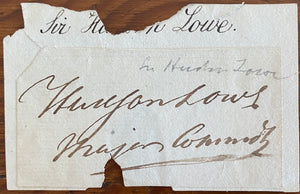 Sir Hudson Lowe.
Sir Hudson Lowe
Hudson Lowe
Major Commdt